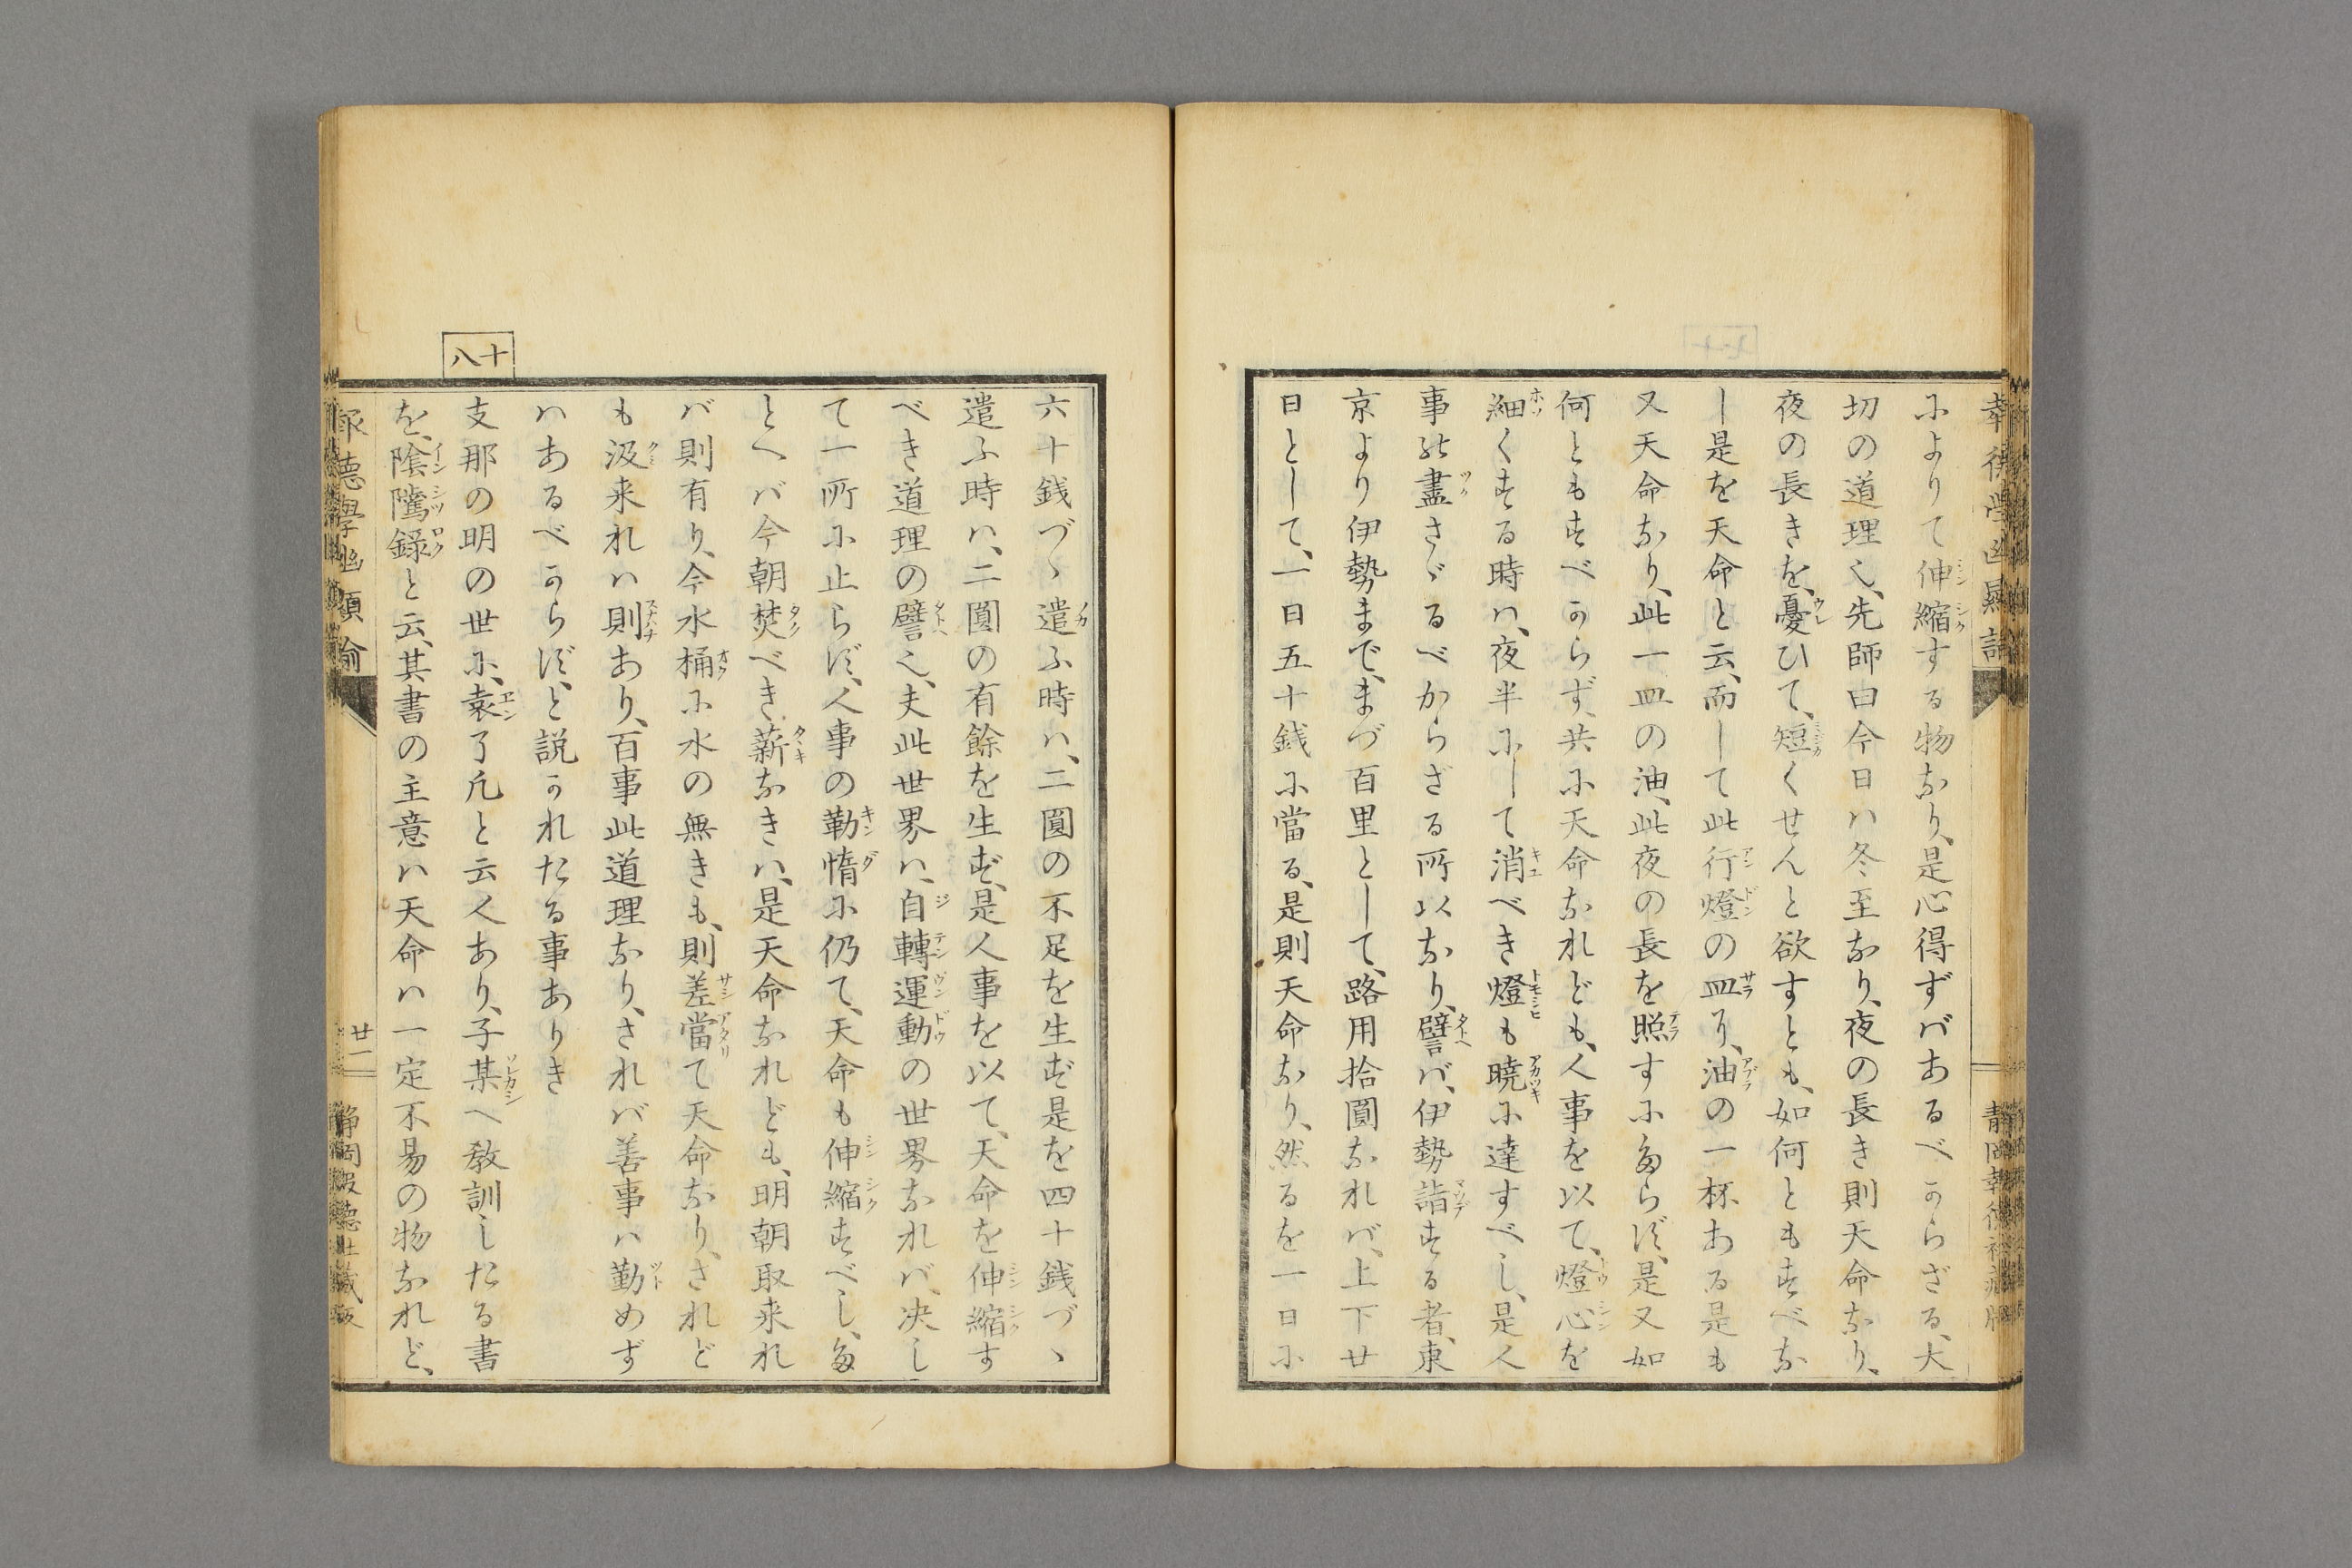 によりて伸縮する物なり、是心得ずバあるべからざる、大
切の道理也、先師曰今日ハ冬至なり、夜の長き則天命なり、
夜の長きを、憂ひて、短くせんと欲すとも、如何ともすべな
し是を天命と云、而して此行燈の皿に、油の一杯ある是も
又天命なり、此一皿の油、此夜の長を照すに足らず、是又如
何ともすべからず、共に天命なれども、人事を以て、燈心を
細くする時ハ、夜半にして消べき燈も暁に達すべし、是人
事の盡さゞるべからざる所以なり、譬バ、伊勢詣する者、東
京より伊勢まで、まづ百里として、路用拾圓なれバ、上下廿
日として、一日五十銭に當る、是則天命なり、然るを一日に
六十銭づゝ遣ふ時ハ、二圓の不足を生ず是を四十銭づゝ
遣ふ時ハ、二圓の有餘を生ず、是人事を以て、天命を伸縮す
べき道理の譬也、夫此世界ハ、自轉運動の世界なれバ、决し
て一所に止らず、人事の勤惰に仍て、天命も伸縮すべし、た
とへバ今朝焚べき薪なきハ、是天命なれども、明朝取来れ
バ則有り、今水桶に水の無きも、則差當て天命なり、されど
も汲来れハ則あり、百事此道理なり、されバ善事ハ勤めず
ハあるべからず、と説かれたる事ありき
十八
支那の明の世に、袁了凡と云人あり、子某へ教訓したる書
を、陰隲録と云、其書の主意ハ天命ハ一定不易の物なれど、
廿一